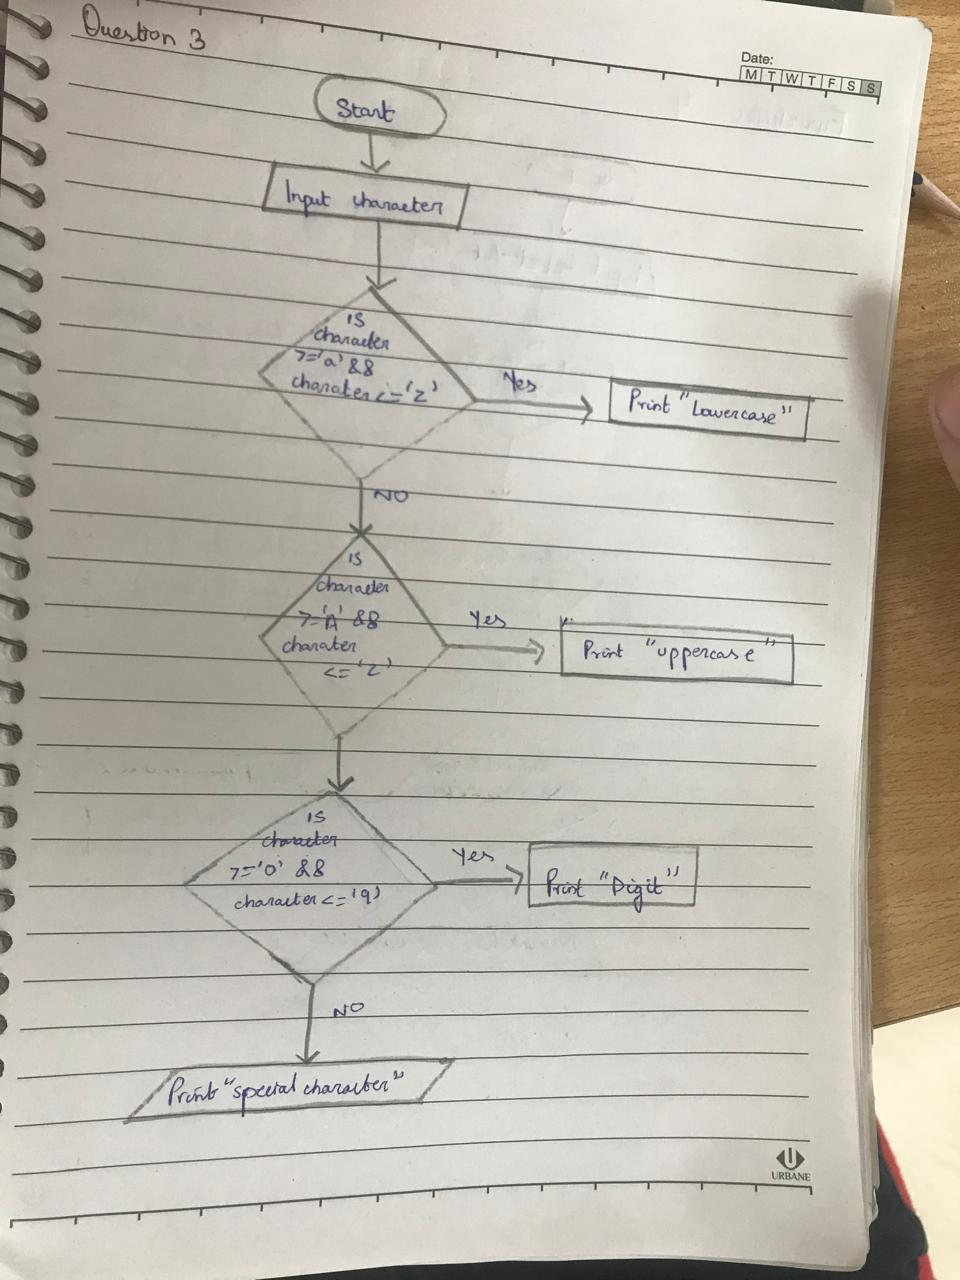 Question 3
Date:
M T W T F S S
Start
Input character
is
character
>='a' &&
charater <='z'
Yes
Print "Lowercase"
NO
is
character
>='A' &&
charater
<='z'
Yes
Print "uppercase"
is
character
>='0' &&
character <='9'
Yes
Print "Digit"
NO
Print "special character"
URBANE